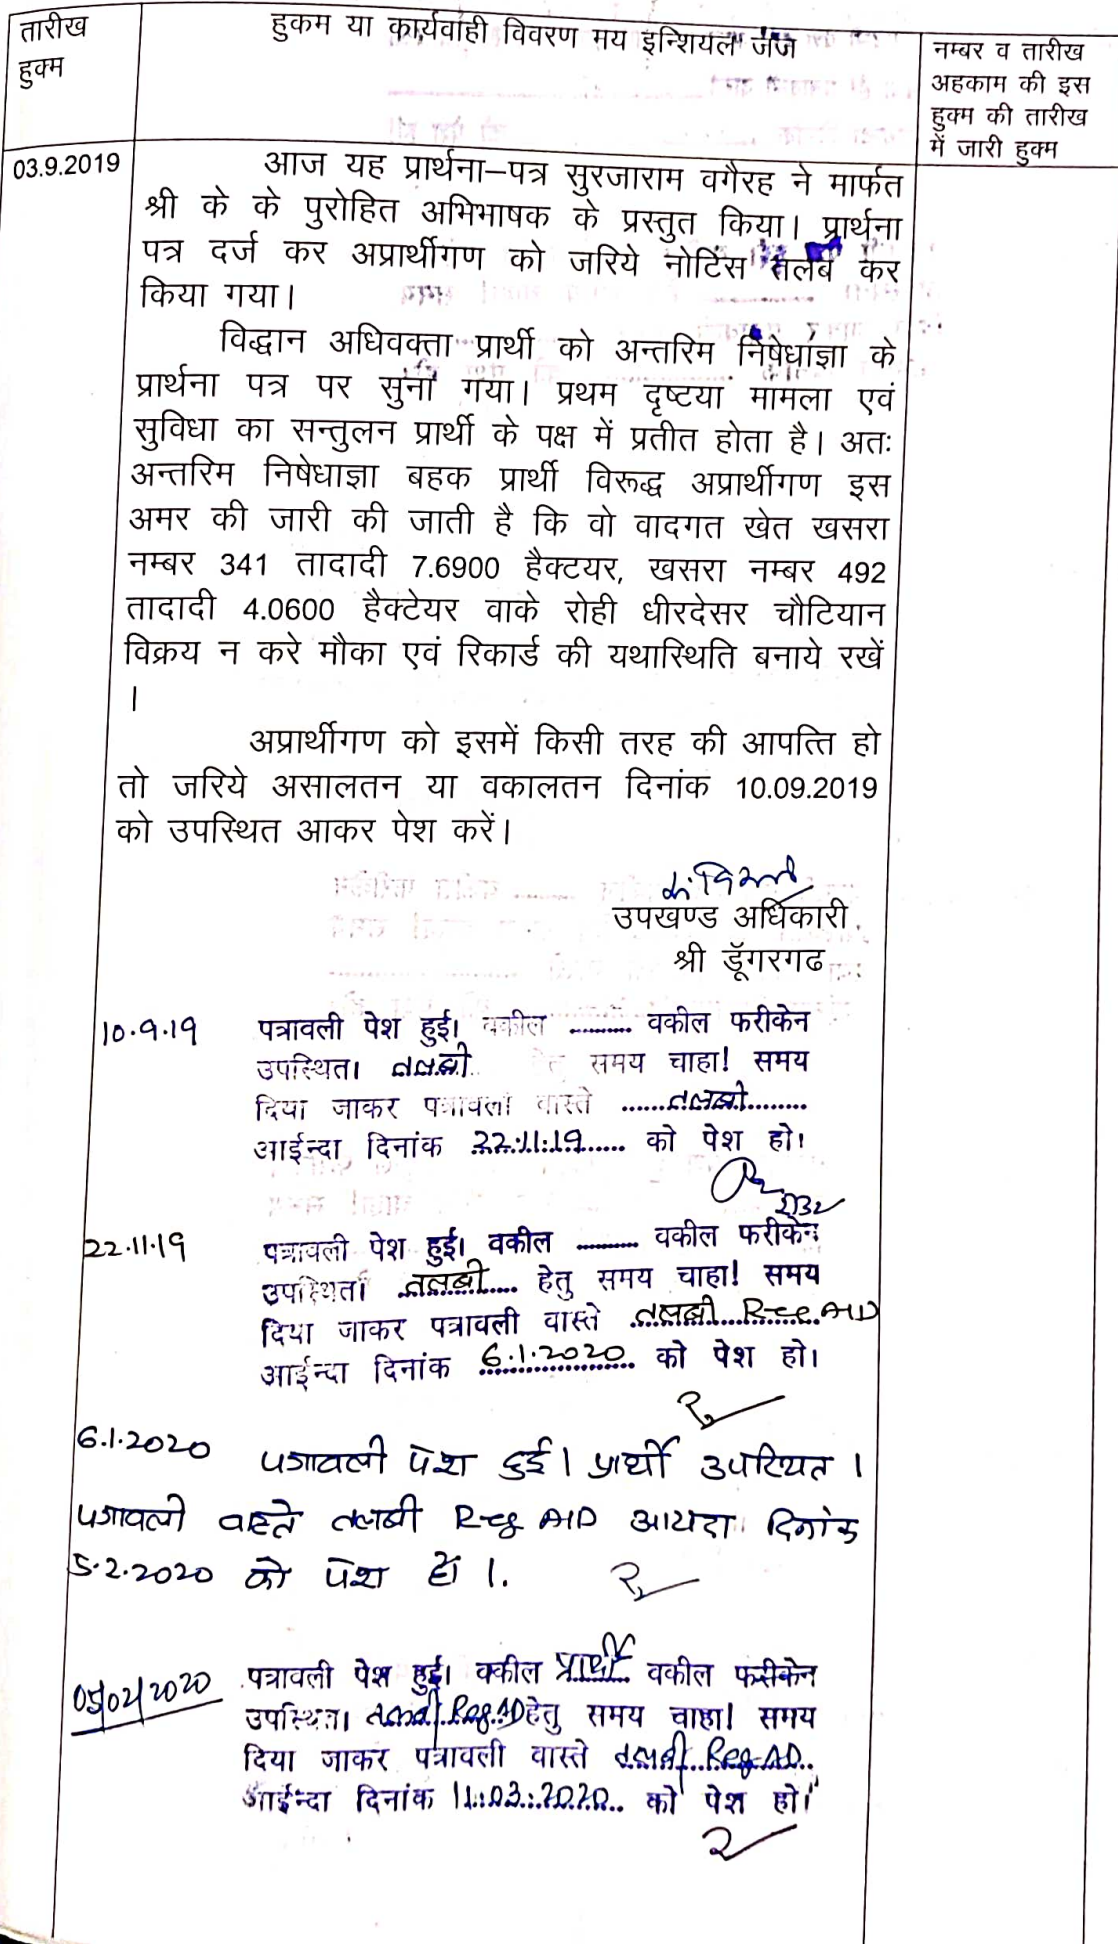 तारीख
हुक्म
हुकम या कार्यवाही विवरण मय इन्शियल जज
नम्बर व तारीख
अहकाम की इस
हुक्म की तारीख
में जारी हुक्म
03.9.2019
आज यह प्रार्थना–पत्र सुरजाराम वगैरह ने मार्फत
श्री के के पुरोहित अभिभाषक के प्रस्तुत किया। प्रार्थना
पत्र दर्ज कर अप्रार्थीगण को जरिये नोटिस तलब कर
किया गया।
विद्धान अधिवक्ता प्रार्थी को अन्तरिम निषेधाज्ञा के
प्रार्थना पत्र पर सुना गया। प्रथम दृष्टया मामला एवं
सुविधा का सन्तुलन प्रार्थी के पक्ष में प्रतीत होता है। अतः
अन्तरिम निषेधाज्ञा बहक प्रार्थी विरूद्ध अप्रार्थीगण इस
अमर की जारी की जाती है कि वो वादगत खेत खसरा
नम्बर 341 तादादी 7.6900 हैक्टयर, खसरा नम्बर 492
तादादी 4.0600 हैक्टेयर वाके रोही धीरदेसर चौटियान
विक्रय न करे मौका एवं रिकार्ड की यथास्थिति बनाये रखें
।
अप्रार्थीगण को इसमें किसी तरह की आपत्ति हो
तो जरिये असालतन या वकालतन दिनांक 10.09.2019
को उपस्थित आकर पेश करें।
उपखण्ड अधिकारी
श्री डूॅगरगढ
10.9.19 पत्रावली पेश हुई। वकील .......... वकील फरीकेन
उपस्थित। तलबी हेतु समय चाहा! समय
दिया जाकर पत्रावली वास्ते ......तलबी.........
आईन्दा दिनांक 22.11.19...... को पेश हो।
22.11.19 पत्रावली पेश हुई। वकील ......... वकील फरीकेन
उपस्थित। तलबी.... हेतु समय चाहा! समय
दिया जाकर पत्रावली वास्ते तलबी Reg AD
आईन्दा दिनांक 6.1.2020 को पेश हो।
6.1.2020 पत्रावली पेश हुई। प्रार्थी उपस्थित ।
पत्रावली वास्ते तलबी Reg AD आयंदा दिनांक
5.2.2020 को पेश हो ।.
05/02/2020 पत्रावली पेश हुई। वकील प्रार्थी वकील फरीकेन
उपस्थित। तलबी Reg AD हेतु समय चाहा! समय
दिया जाकर पत्रावली वास्ते तलबी Reg AD..
आईन्दा दिनांक 11.03.2020.. को पेश हो।